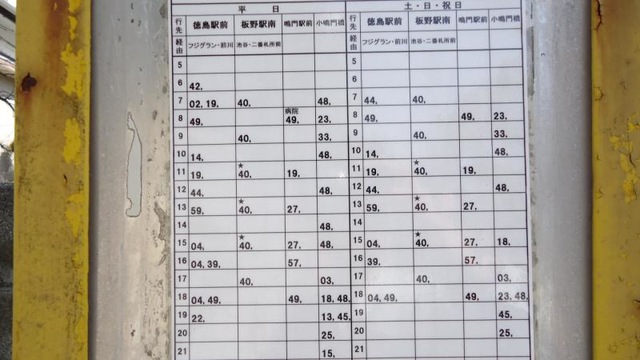 平 日 土・日・祝日
行先 徳島駅前 板野駅南 鳴門駅前 小鳴門橋 行先 徳島駅前 板野駅南 鳴門駅前 小鳴門橋
経由 フジグラン・前川 池谷・二番札所前 経由 フジグラン・前川 池谷・二番札所前
5 5
6 42. 6
7 02, 19. 40. 48. 7 44. 40.
病院
8 49. 49. 23. 8 49. 49. 23.
9 40. 33. 9 40. 33.
10 14. 48. 10 14. 48.
★ ★
11 19. 40. 19. 11 19. 40. 19.
12 44. 48. 12 44. 48.
★ ★
13 59. 40. 27. 13 59. 40. 27.
14 48. 14
★ ★
15 04. 40. 27. 48. 15 04. 40. 27. 18.
16 04. 39. 57. 16 39. 57.
17 40. 03. 17 40. 03.
18 04. 49. 49. 18. 48. 18 04. 49. 49. 23. 48.
19 22. 13. 45. 19 45.
20 25. 20 25.
21 15. 21